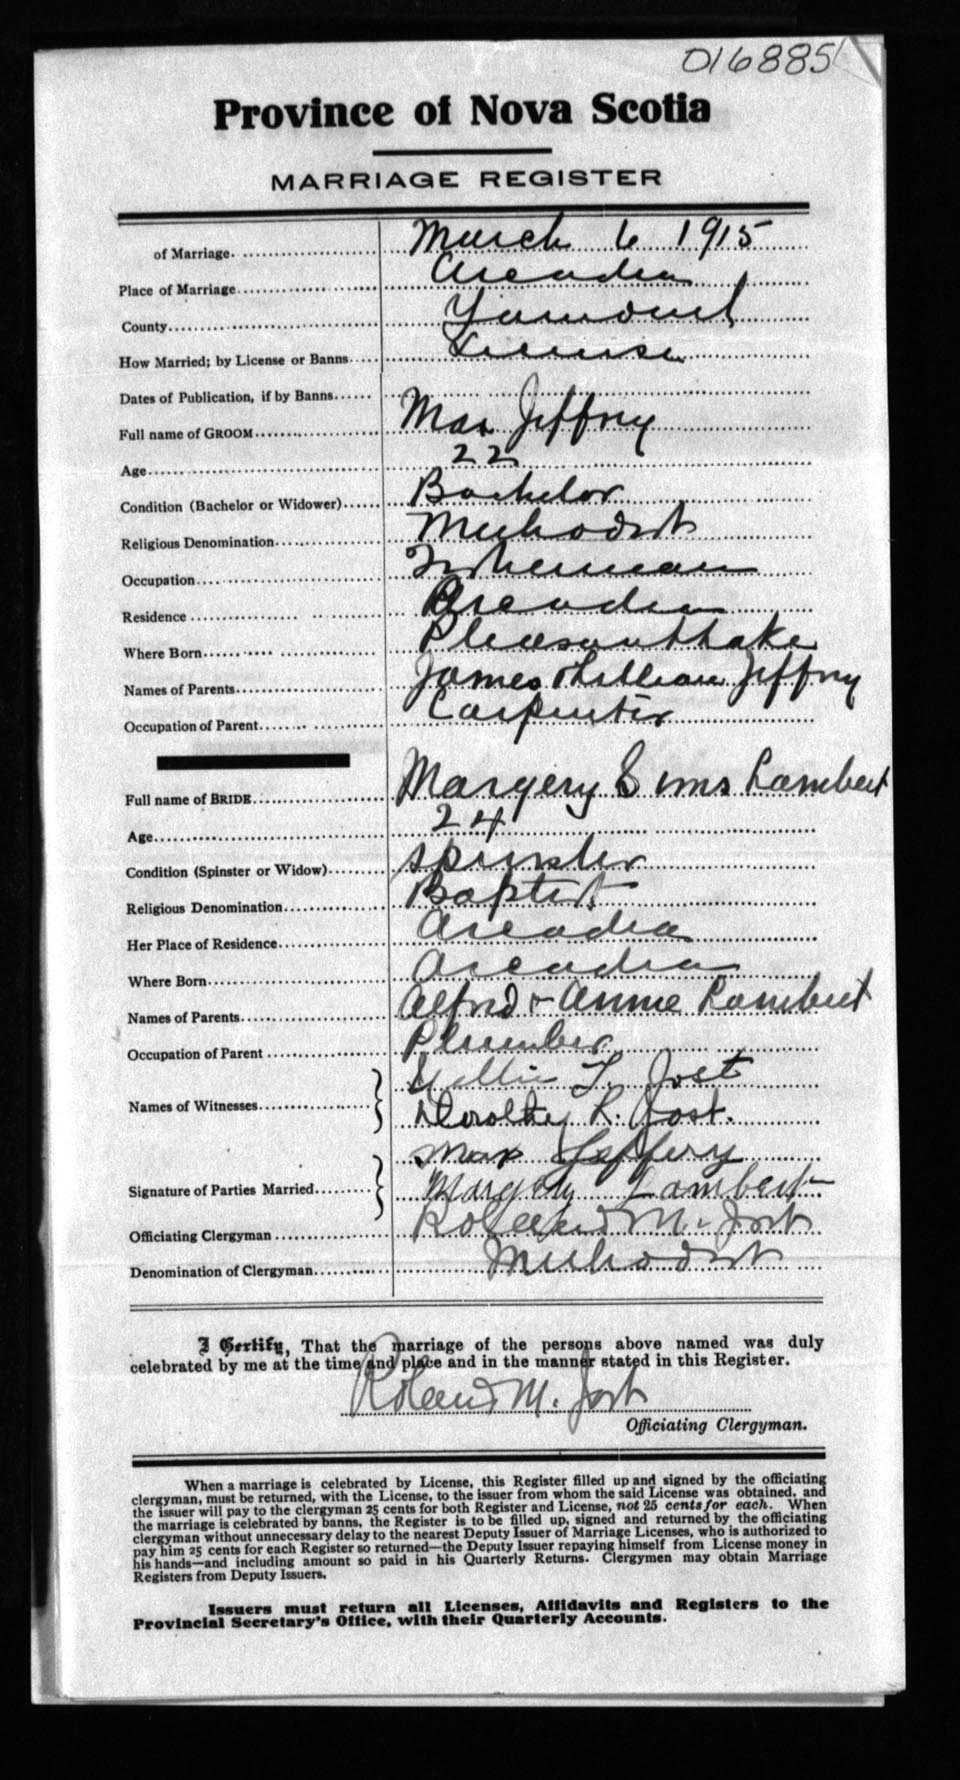 016885
Province of Nova Scotia
MARRIAGE REGISTER
of Marriage March 6 1915
Place of Marriage Arcadia
County Yarmouth
How Married; by License or Banns License
Dates of Publication, if by Banns
Full name of GROOM Max Jeffrey
Age 22
Condition (Bachelor or Widower) Bachelor
Religious Denomination Methodist
Occupation Fisherman
Residence Arcadia
Where Born Pleasant Lake
Names of Parents James & Lillian Jeffrey
Occupation of Parent Carpenter
Full name of BRIDE Margery Lambert
Age 24
Condition (Spinster or Widow) Spinster
Religious Denomination Baptist
Her Place of Residence Arcadia
Where Born Arcadia
Names of Parents Alfred & Annie Lambert
Occupation of Parent Plumber
T. Jost
Names of Witnesses Dorothy R. Jost.
Max Jeffery
Signature of Parties Married Margery Lambert
Officiating Clergyman Roland M. Jost
Denomination of Clergyman Methodist
I Certify, That the marriage of the persons above named was duly
celebrated by me at the time and place and in the manner stated in this Register.
Roland M. Jost
Officiating Clergyman.
When a marriage is celebrated by License, this Register filled up and signed by the officiating
clergyman, must be returned, with the License, to the issuer from whom the said License was obtained, and
the issuer will pay to the clergyman 25 cents for both Register and License, not 25 cents for each. When
the marriage is celebrated by banns, the Register is to be filled up, signed and returned by the officiating
clergyman without unnecessary delay to the nearest Deputy Issuer of Marriage Licenses, who is authorized to
pay him 25 cents for each Register so returned—the Deputy Issuer repaying himself from License money in
his hands—and including amount so paid in his Quarterly Returns. Clergymen may obtain Marriage
Registers from Deputy Issuers.
Issuers must return all Licenses, Affidavits and Registers to the
Provincial Secretary's Office, with their Quarterly Accounts.